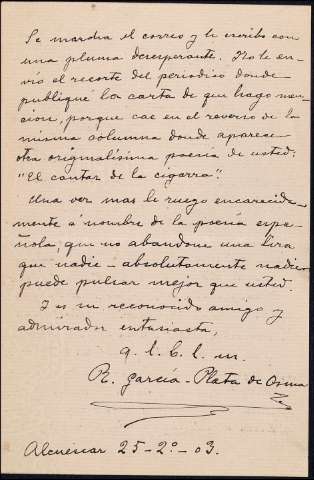 Se marcha el correo y le escribo con
una pluma desesperante. No le en-
vío el recorte del periodico donde
publiqué la carta de que hago men-
cion, porque cae en el reverso de la
misma columna donde aparece
otra originalísima poesía de usted:
"El cantar de la cigarra".
Una vez mas le ruego encarecida-
mente á nombre de la poesía espa-
ñola que no abandone una lira
que nadie - absolutamente nadie
puede pulsar mejor que usted.
Y es su reconocido amigo y
admirador entusiasta,
q. l. b. l. m.
R. García-Plata de Osma
Alcuéscar 25-2º-03.